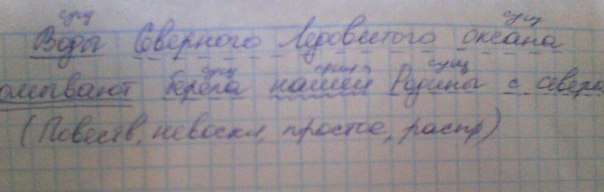 сущ сущ
Воды Северного Ледовитого океана
омывают берега нашей Родины с севера
сущ сущ
(Повеств, невоскл, простое, распр)